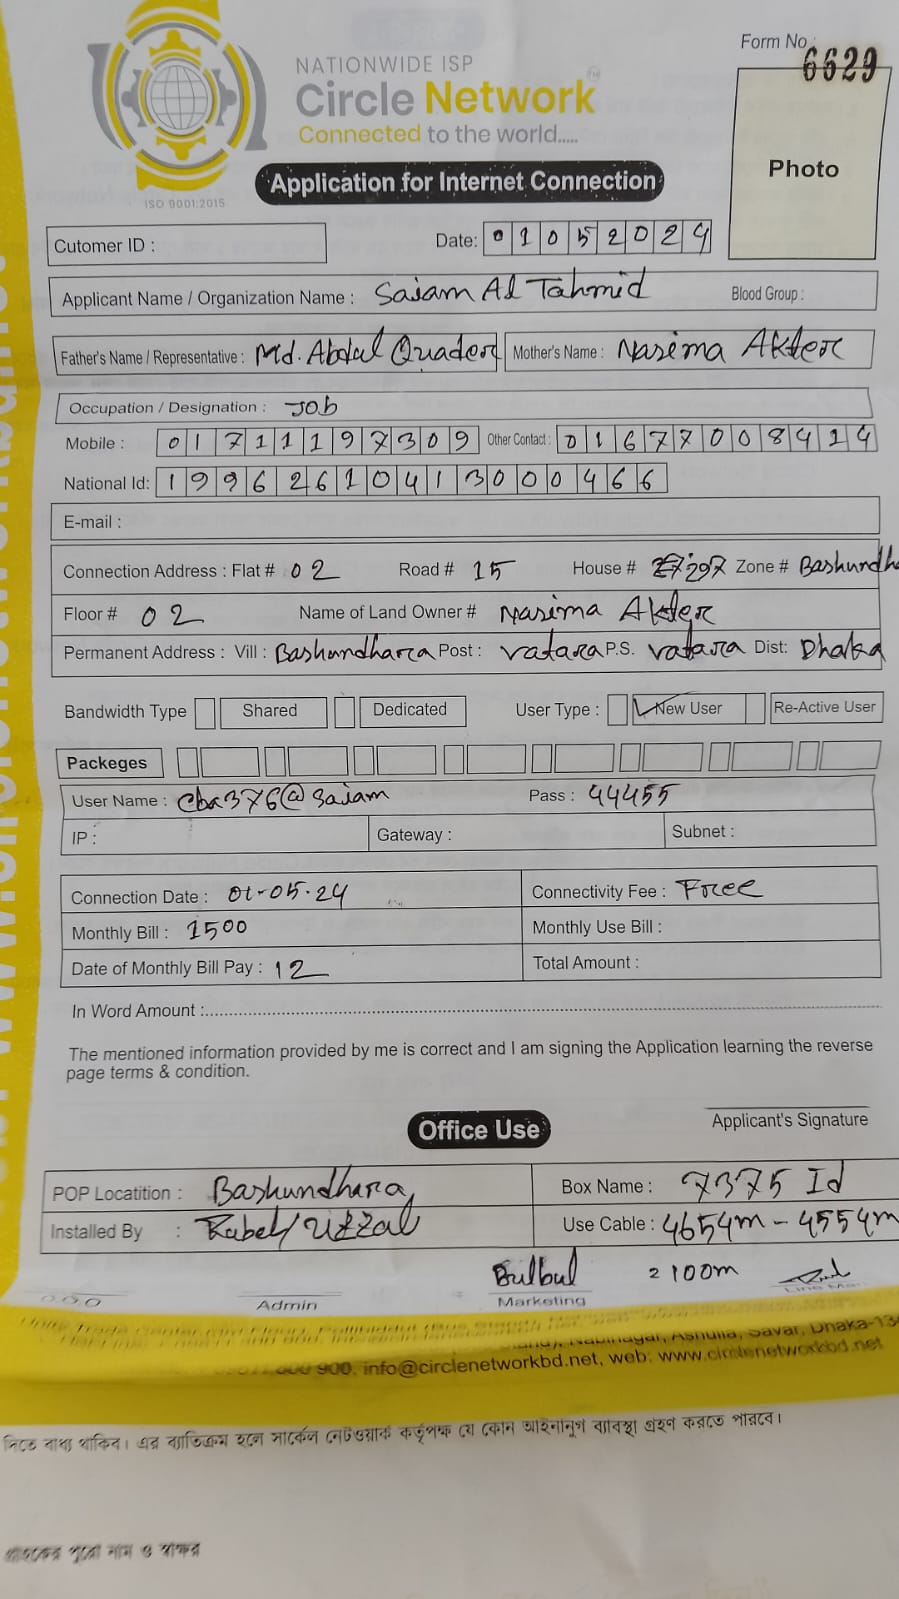 Form No : 6629
NATIONWIDE ISP
Circle Network TM
Connected to the world.....
Photo
ISO 9001:2015
Application for Internet Connection
Cutomer ID :
Date: 01052024
Applicant Name / Organization Name : Saiam Al Tahmid Blood Group :
Father's Name / Representative : Md. Abdul Quader Mother's Name : Nasima Akter
Occupation / Designation : Job
Mobile : 01711197309 Other Contact : 01677008414
National Id: 19962610413000466
E-mail :
Connection Address : Flat # 02 Road # 15 House # 297 Zone # Bashundh
Floor # 02 Name of Land Owner # Nasima Akter
Permanent Address : Vill : Bashundhara Post : vatara P.S. vatara Dist: Dhaka
Bandwidth Type Shared Dedicated User Type : New User Re-Active User
Packeges
User Name : cba376@saiam Pass : 44455
IP : Gateway : Subnet :
Connection Date : 01-05-24 Connectivity Fee : Free
Monthly Bill : 1500 Monthly Use Bill :
Date of Monthly Bill Pay : 12 Total Amount :
In Word Amount :
The mentioned information provided by me is correct and I am signing the Application learning the reverse
page terms & condition.
Applicant's Signature
Office Use
POP Locatition : Bashundhara Box Name : 7375 Id
Installed By : Rabel/Uzzal Use Cable : 4654m - 4554m
Bulbul = 100m
Admin Marketing
Nabinagar, Ashulia, Savar, Dhaka-13
900, info@circlenetworkbd.net, web: www.circlenetworkbd.net
দিতে বাধ্য থাকিব। এর ব্যতিক্রম হলে সার্কেল নেটওয়ার্ক কর্তৃপক্ষ যে কোন আইনানুগ ব্যবস্থা গ্রহণ করতে পারবে।
গ্রাহকের পুরো নাম ও স্বাক্ষর